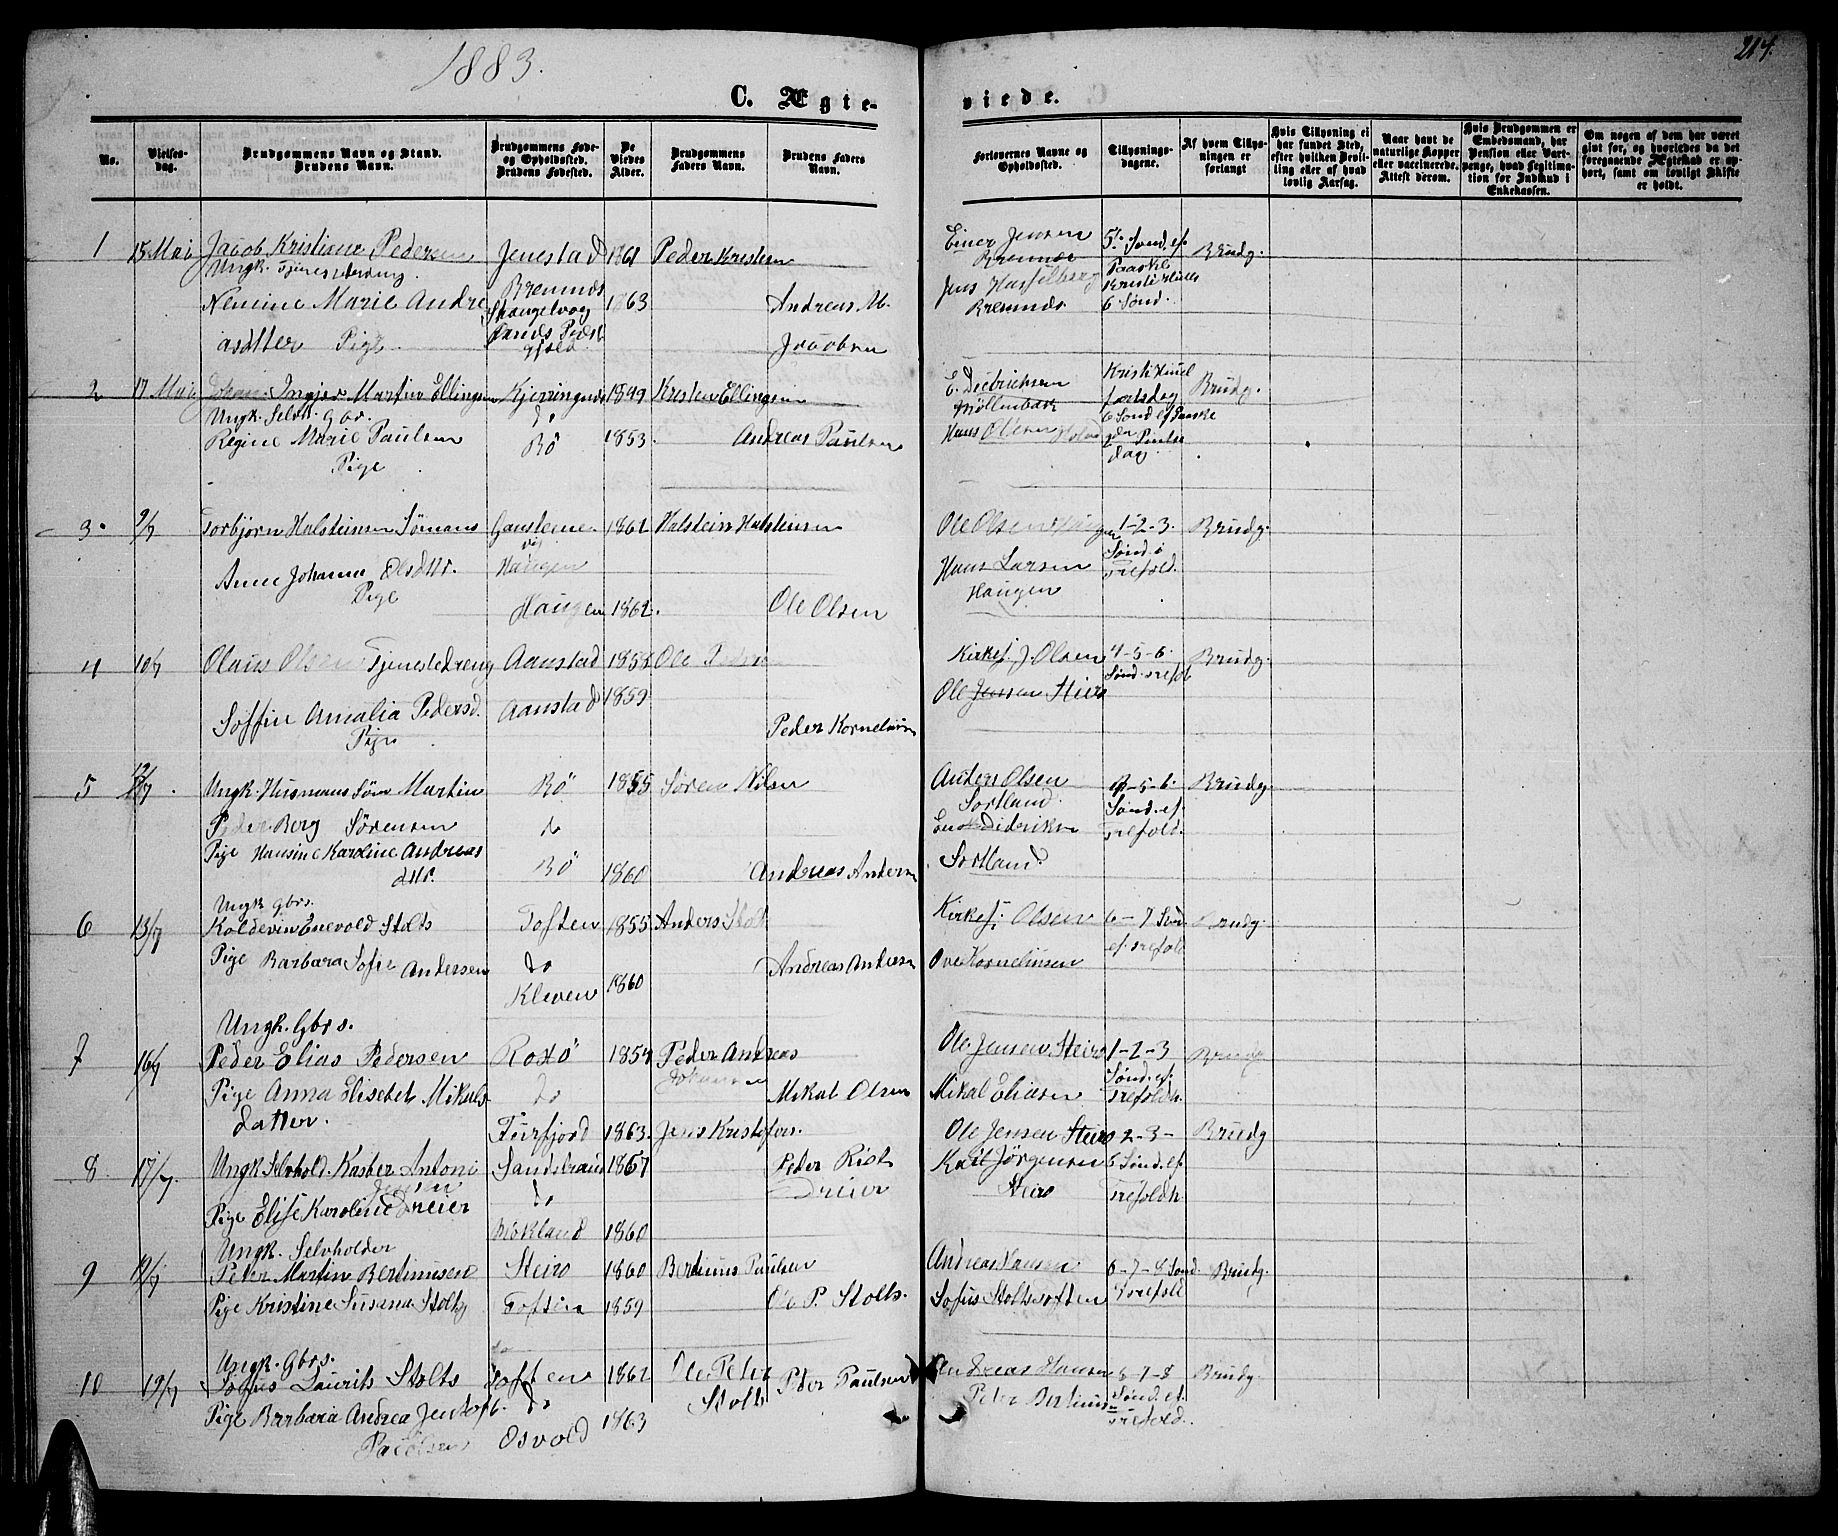 1883.
214.
C. Ægte-
viede.
No.
Vielses-
dag.
Brudgommens Navn og Stand.
Brudens Navn.
Brudgommens Føde-
og Opholdssted.
Brudens Fødested.
De
Viedes
Alder.
Brudgommens
Faders Navn.
Brudens Faders
Navn.
Forlovernes Navne og
Opholdssted.
Tillysnings-
dagene.
Af hvem Tillys-
ningen er
forlangt
Hvis Tillysning ei
har fundet Sted,
efter hvilken Bevil-
ling eller af hvad
lovlig Aarsag.
Naar havt de
naturlige Kopper
eller vaccinerede.
Attest derom.
Hvis Brudgommen er
Embedsmand, har
Pension eller Vart-
penge, hvad Legitima-
tion for Indskud i
Enkekassen.
Om nogen af dem har været
gift før, og hvorledes da det
foregaaende Ægteskab er op-
hørt, samt om lovligt Skifte
er holdt.
1 15 Mai Jacob Kristian Pedersen Jenestad 1861 Peder Kristen
Ungk. Tjenestedreng
Bremnes
Marie Andre 1863 Andreas M.
asdtter Pige Jacobsen
Einer Jensen 5te Sønd. ef. Brudg.
Bremnes Paaske
Jens Hasselberg Kristi Him
Bremnes 6 Sønd.
2 17 Mai Ingjer Martin Ellingsen Kjerringnes 1849 Kristen Ellingsen
Ungk. Selvh. Gbr. do
Regine Marie Paulsen Bø 1853. Andreas Paulsen
Pige
E. Diedrichsen Kristi Himl Brudg.
Møllenbak fartsdag
Hans Olsen 6 Sønd ef Paaske
2den Pintse
dag
3. 9/7 Torbjørn Halsteinsen Sømans 1862 Halstein Halsteinsen
Haugen
Anne Johanna Olsdttr.
Pige
Haugen 1862. Ole Olsen
Ole Olsen Haugen 1-2-3. Brudg.
Hans Larsen Sønd.
Haugen Trefold.
4 10/7 Olaus Olsen Tjenestedreng Aanstad 1858 Ole Peder
Soffie Amalia Pedersd. Aanstad 1859
Pige Peder Kornelius
Kirkes. J. Olsen 4-5-6. Brudg.
Sønd. Trefol
Ole Jensen Steiro
5 12/7. Ungk. Husmans Søn Martin Bø 1855 Søren Nilsen
Peder Berg Sörensen do
Pige Hansine Karoline Andreas Bö 1860 Andreas Andersen
dttr.
Anders Olsen 4-5-6. Brudg.
Sortland. Sønd. ef.
Enok Didriksen Trefold.
Sortland.
Ungk Gbrs.
6 13/7 Koldevin Enevold Stolts Toften 1855 Anders Stolt
Pige Barbara Sofie Andersen do Andreas Anders
Kleven 1860
Kirkes. Olsen 6-7 Sønd Brudg.
ef. Trefold
Ove Korneliusen
Ungk. Gbrs.
7 16/7 Peder Elias Pedersen 1854 Peder Andreas
Johansen
Pige Anna Elisebet Mikals do Mikal Olsen
datter. Fiirfjord 1863.
Ole Jensen Steiro 1-2-3 Brudg
Sønd. ef.
Mikal Eliasen Trefoldh.
8 17/7. Ungk. Selvhold. Kasper Antoni 1857 Jens Kristofers.
Jensen do Peder Rist
Pige Elise Karoline Dreier Dreier
Mokland 1860
Ole Jensen Steiro 2-3- Brudg
Karl Jörgensen Sønd. ef.
Steiro Trefoldh.
Ungk. Selvholder
9 Peter Martin Bertinusen Steiro 1860 Bertinus Paulsen
Pige Kristine Susana Stolts Toften 1859 Ole P. Stolts.
Andreas Hansen 6-7-8 Sønd. Brudg.
Sofus Stolts Toften Trefold
Ungk. Gbrs.
10 19/7 Sofus Laurits Stolts Toften 1862 Ole Peter Peder Paulsen
Stolts
Pige Barbara Andrea Jentoft do
Paulsen Osvold 1863
Andreas Hansen 6-7-8 Brudg.
Peter Bertinus Sønd. ef.
Trefold.